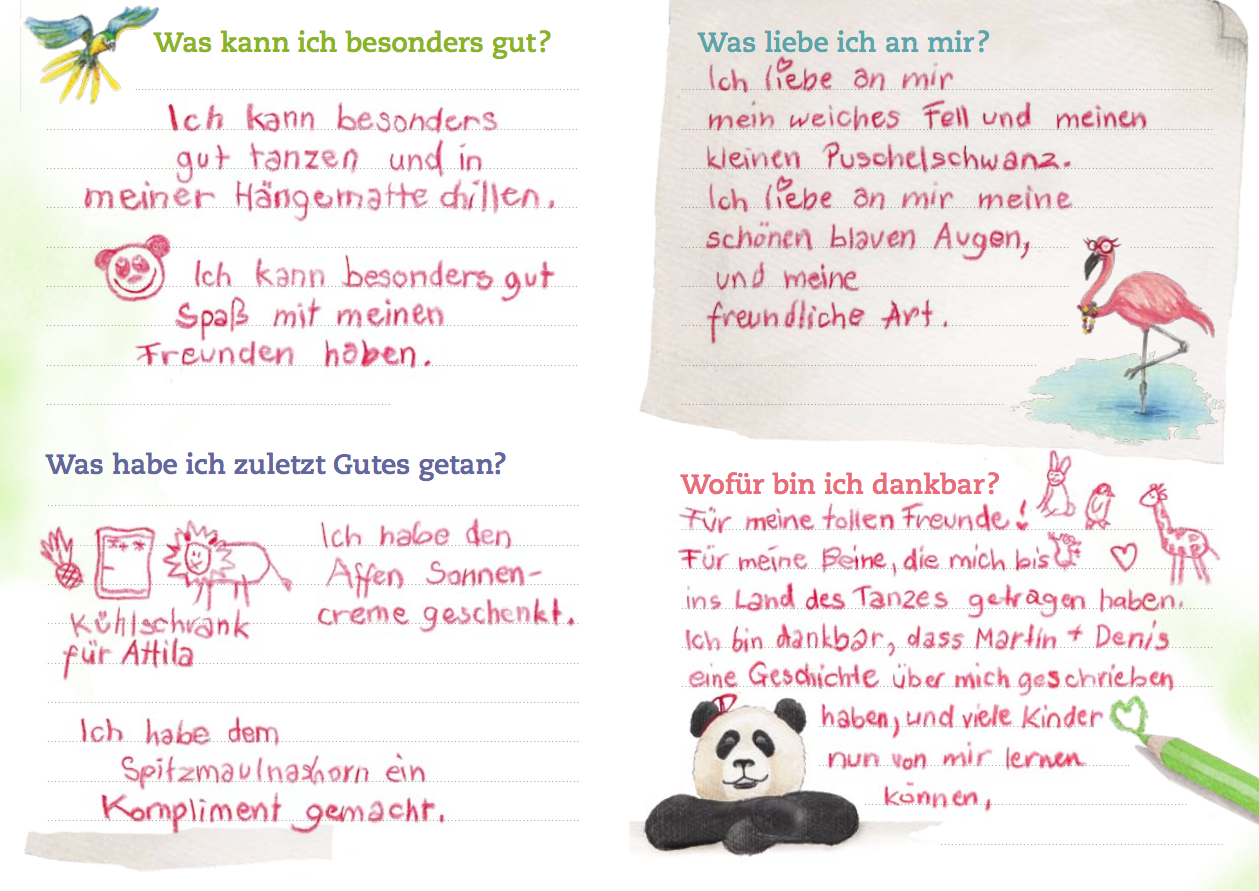 Was kann ich besonders gut?
Ich kann besonders
gut tanzen und in
meiner Hängematte chillen.
Ich kann besonders gut
Spaß mit meinen
Freunden haben.
Was habe ich zuletzt Gutes getan?
Ich habe den
Affen Sonnen-
creme geschenkt.
Kühlschrank
für Attila
Ich habe dem
Spitzmaulnashorn ein
Kompliment gemacht.
Was liebe ich an mir?
Ich liebe an mir
mein weiches Fell und meinen
kleinen Puschelschwanz.
Ich liebe an mir meine
schönen blauen Augen,
und meine
freundliche Art.
Wofür bin ich dankbar?
Für meine tollen Freunde!
Für meine Beine, die mich bis
ins Land des Tanzes getragen haben.
Ich bin dankbar, dass Martin + Denis
eine Geschichte über mich geschrieben
haben, und viele Kinder
nun von mir lernen
können,